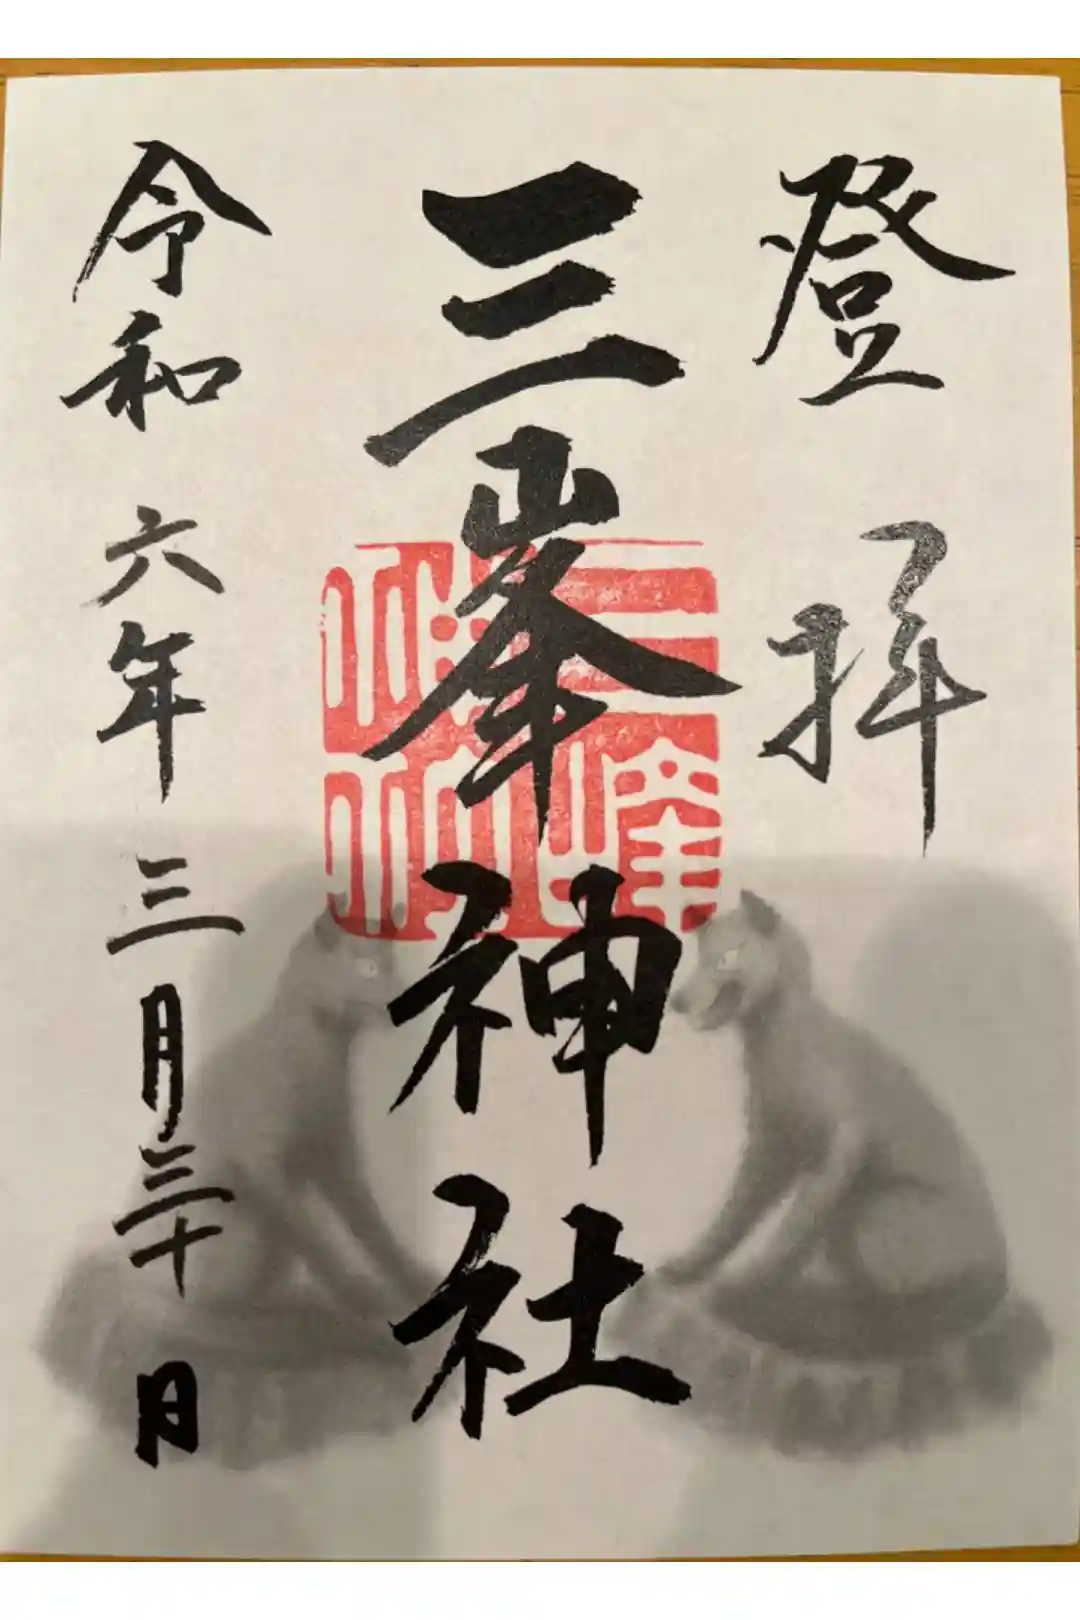 登拝
三峯神社
三峯神社
令和六年三月三十日